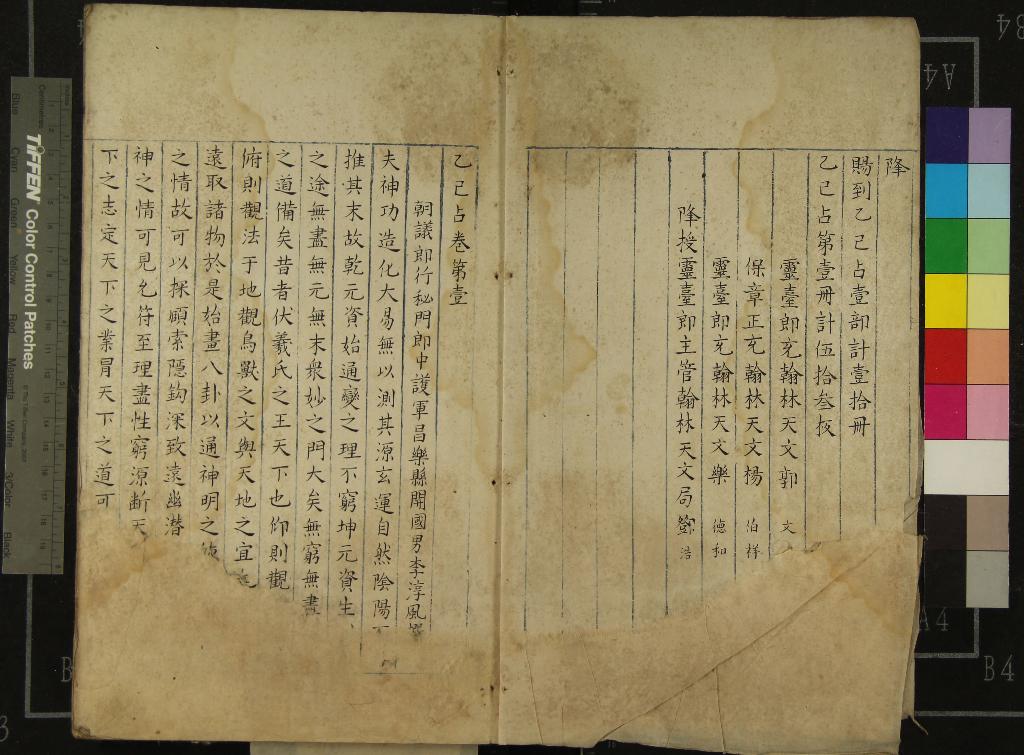 降
賜到乙巳占壹部計壹拾冊
乙巳占第壹冊計伍拾叁板
靈臺郎充翰林天文郭 文
保章正充翰林天文楊 伯祥
靈臺郎充翰林天文樂 德和
降授靈臺郎主管翰林天文局鄧 浩
乙巳占卷第壹
朝議郎行秘門郎中護軍昌樂縣開國男李淳風
夫神功造化大易無以測其源玄運自然陰陽
推其末故乾元資始通變之理不窮坤元資生
之途無盡無元無末衆妙之門大矣無窮無盡
之道備矣昔者伏羲氏之王天下也仰則觀
俯則觀法于地觀鳥獸之文與天地之宜
遠取諸物於是始畫八卦以通神明之
之情故可以探頤索隱鈎深致遠幽潜
神之情可見允符至理盡性窮源断天
下之志定天下之業冒天下之道可
TIFFEN Color Control Patches
Blue
Cyan
Green
Yellow
Red
Magenta
White
3/Color
Black
A4
B4
A4
B4
B
3